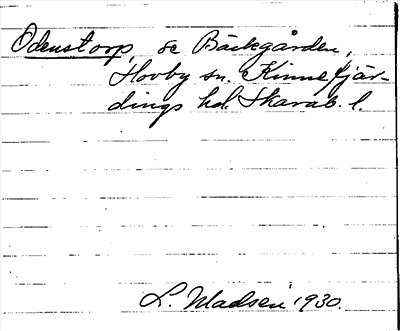 Odenstorp, se Bäckgården,
Hovby sn. Kinnefjär-
dings hd. Skarab. l.
L. Madsen 1930.